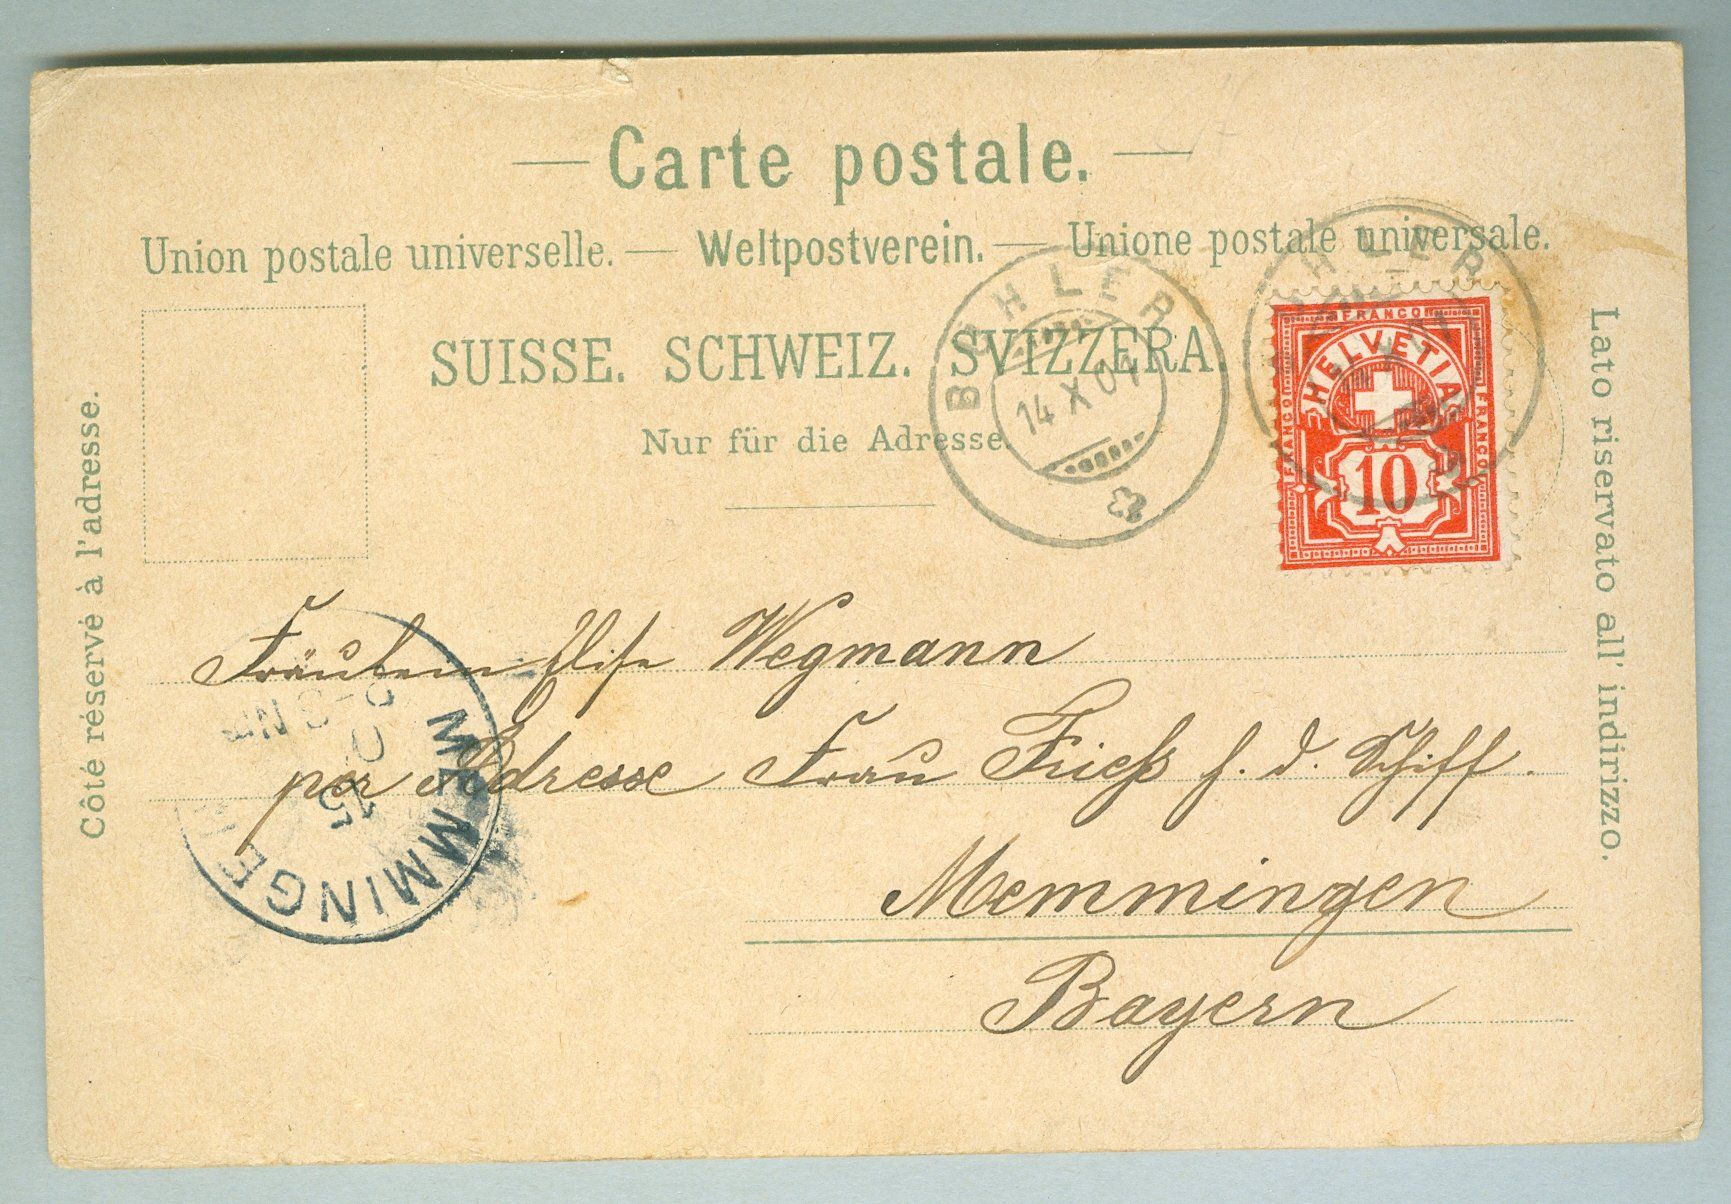 Carte postale.
Union postale universelle. — Weltpostverein. — Unione postale universale.
SUISSE. SCHWEIZ. SVIZZERA.
Nur für die Adresse.
Côté réservé à l'adresse.
Lato riservato all' indirizzo.
BÜHLER
14 X 01
HLER
FRANCO
FRANCO
FRANCO
HELVETIA
10
Fräulein Elise Wegmann
per Adresse Frau Frieß z. d. Schiff.
Memmingen
Bayern
MEMMINGEN
15